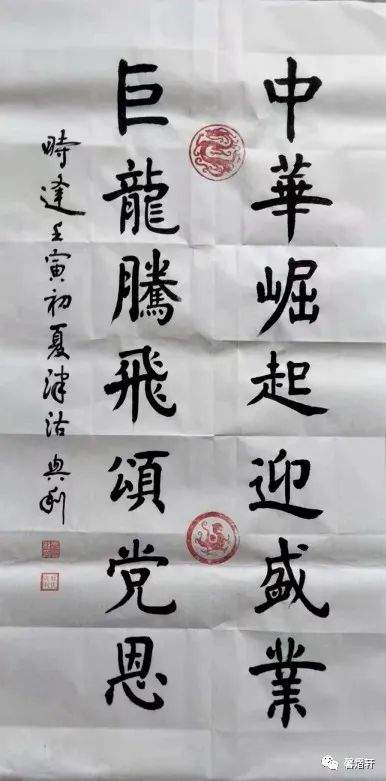 中華崛起迎盛業
巨龍騰飛頌党恩
時逢壬寅初夏津沽典利
馨滫轩